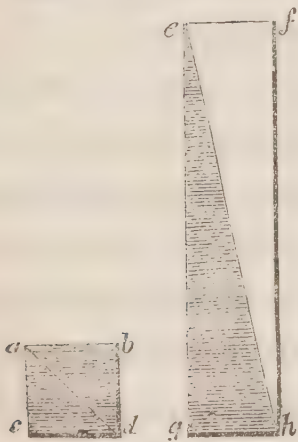 e f
a b
c d
g h